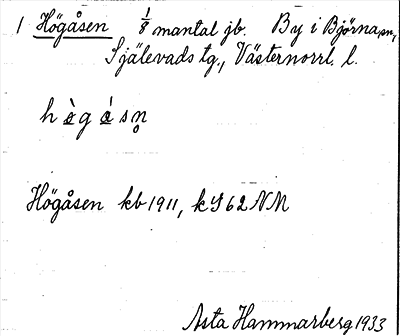 1 Högåsen 1/8 mantal jb. By i Björna sn,
Själevads tg., Västernorrl. l.
h ò g á s n̥
Högåsen kb 1911, k 962 NM
Asta Hammarberg 1933